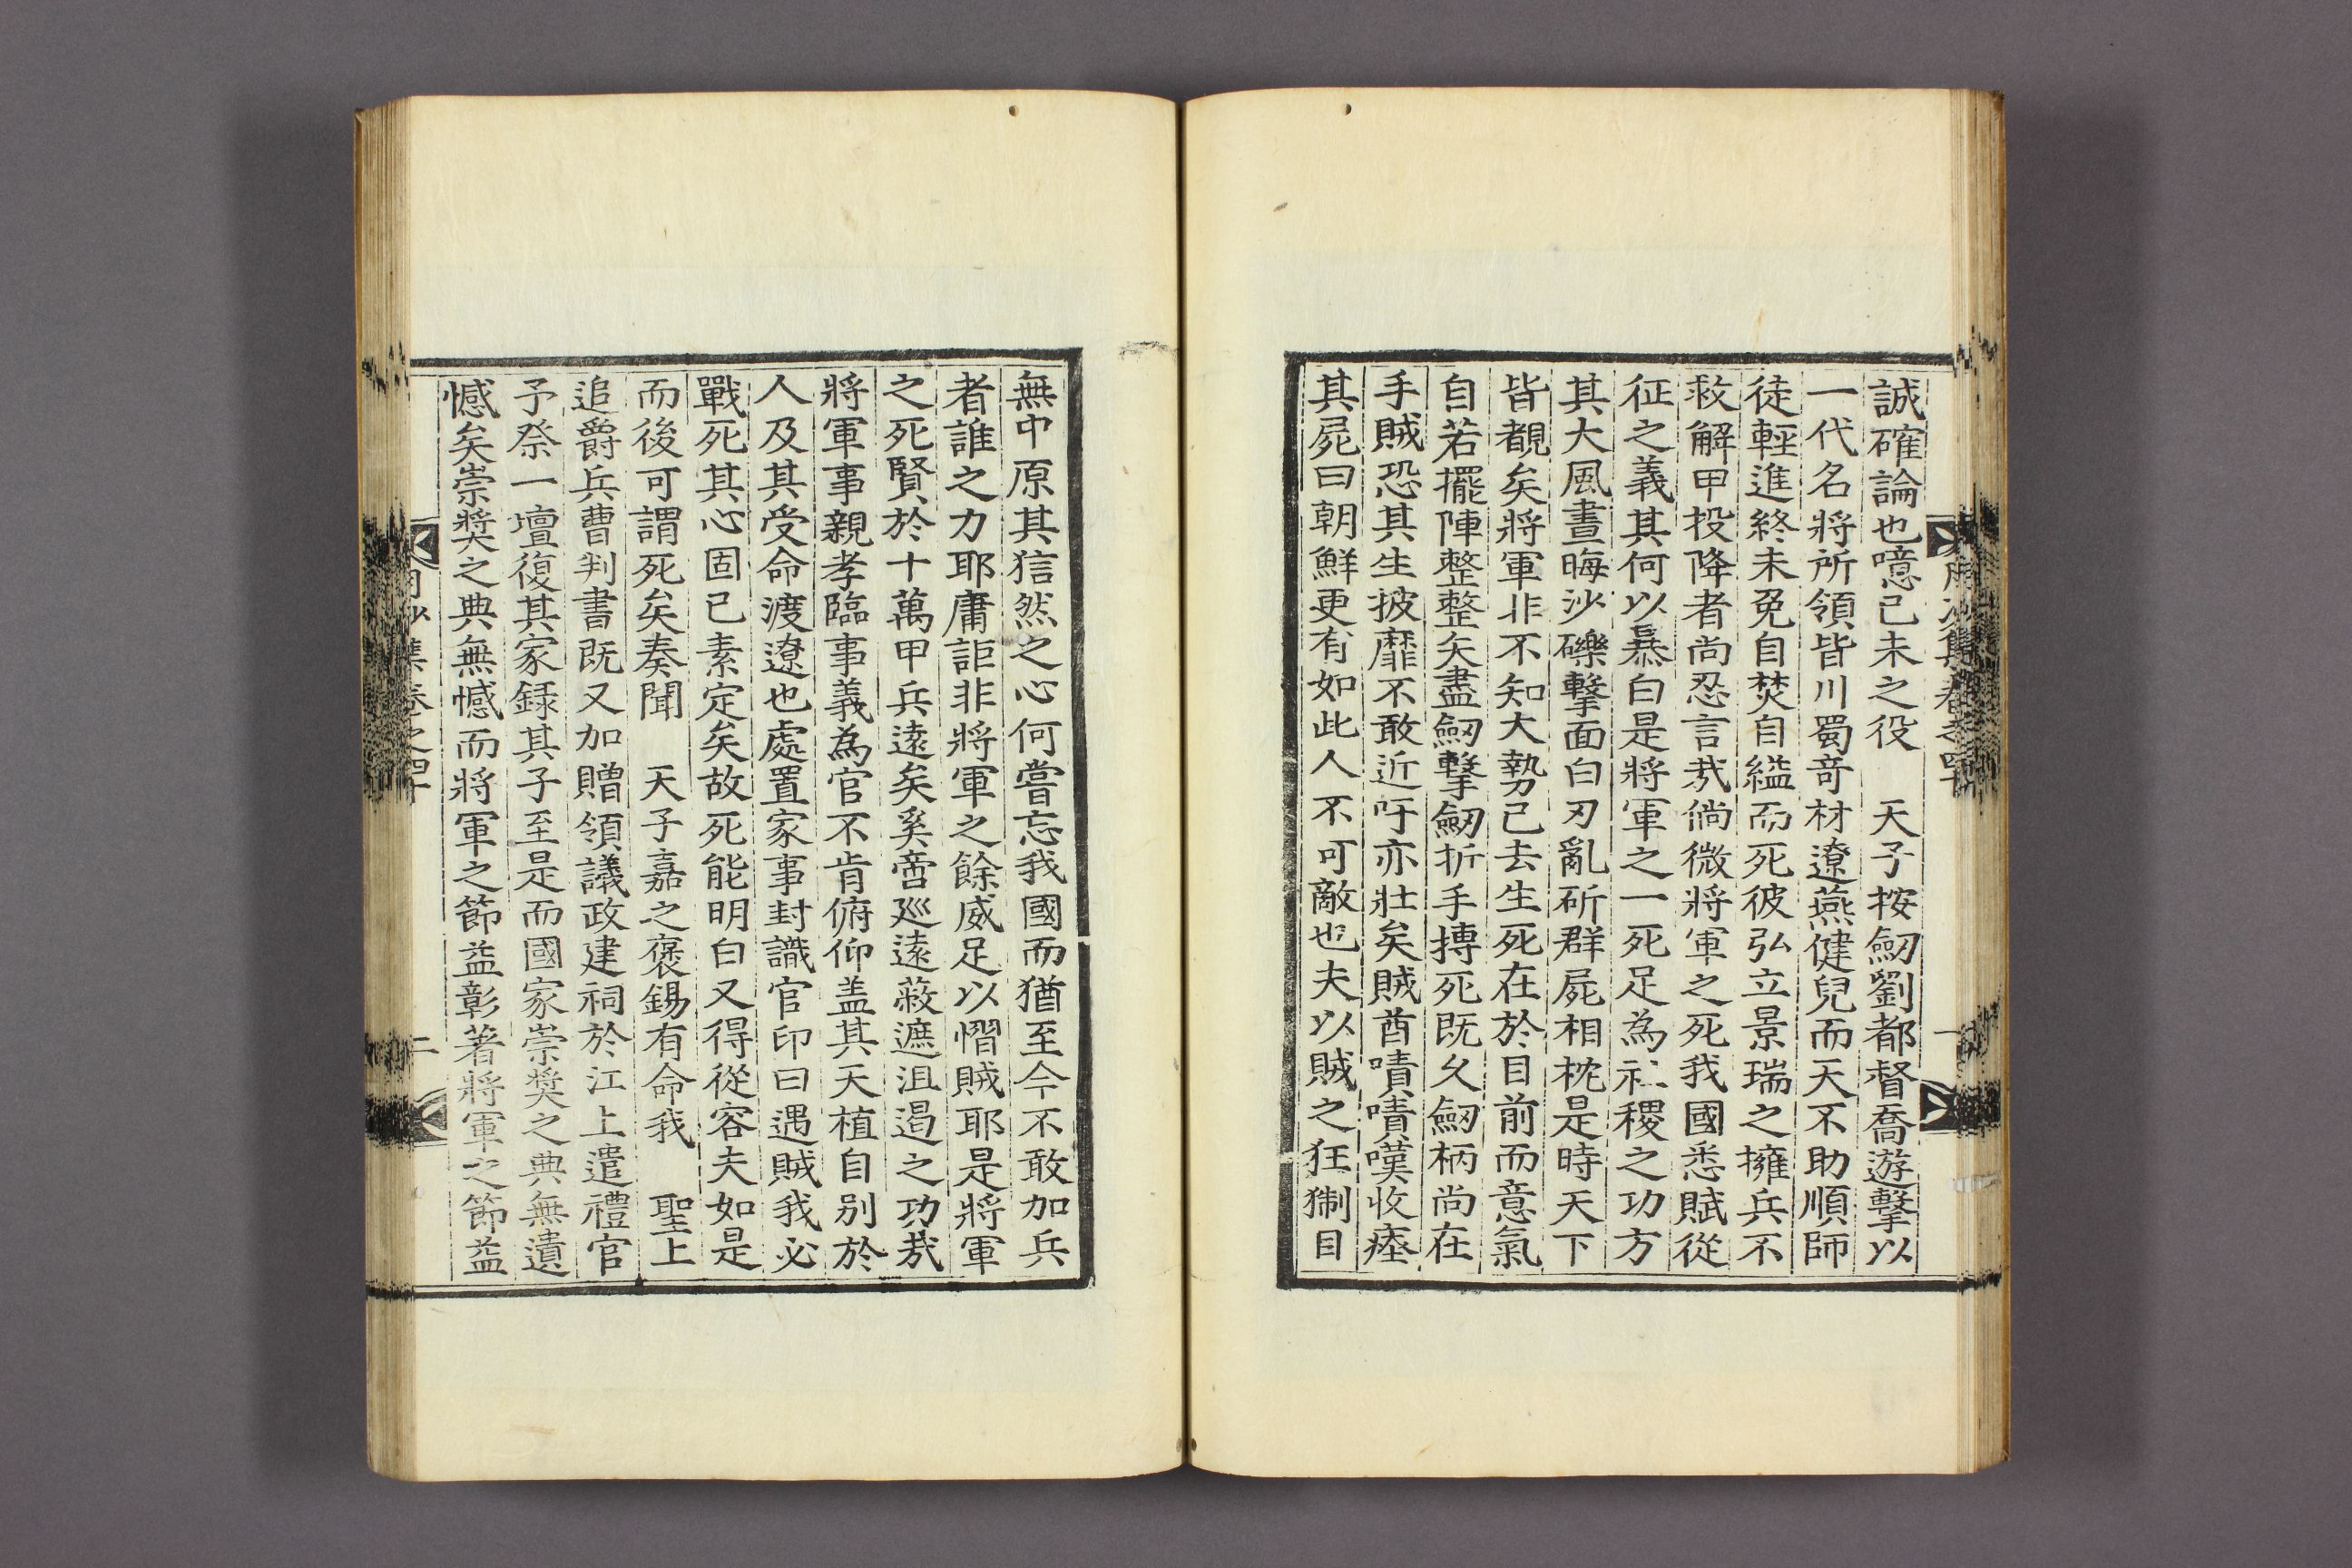 誠確論也噫己未之役　天子按劒劉都督喬遊擊以
一代名將所領皆川蜀竒材遼燕健兒而天不助順師
徒輕進終未免自焚自縊而死彼弘立景瑞之擁兵不
救解甲投降者尚忍言㢤倘微將軍之死我國悉賦從
征之義其何以暴白是將軍之一死足為社稷之功方
其大風晝晦沙礫擊面白刃亂斫群屍相枕是時天下
皆覩矣將軍非不知大勢已去生死在於目前而意氣
自若擺陣整整矢盡劒擊劒折手搏死既久劒柄尚在
手賊恐其生披靡不敢近吁亦壯矣賊酋嘖嘖嘆收瘞
其屍曰朝鮮更有如此人不可敵也夫以賊之狂猘目
無中原其狺然之心何嘗忘我國而猶至今不敢加兵
者誰之力耶庸詎非將軍之餘威足以慴賊耶是將軍
之死賢於十萬甲兵逺矣奚啻廵逺蔽遮沮遏之功㢤
將軍事親孝臨事義為官不肯俯仰盖其天植自别於
人及其受命渡遼也處置家事封識官印曰遇賊我必
戰死其心固已素定矣故死能明白又得從容夫如是
而後可謂死矣奏聞　天子嘉之褒錫有命我　聖上
追爵兵曹判書既又加贈領議政建祠於江上遣禮官
予祭一壇復其家録其子至是而國家崇奬之典無遺
憾矣崇奬之典無憾而將軍之節益彰著將軍之節益
集卷之四十
二